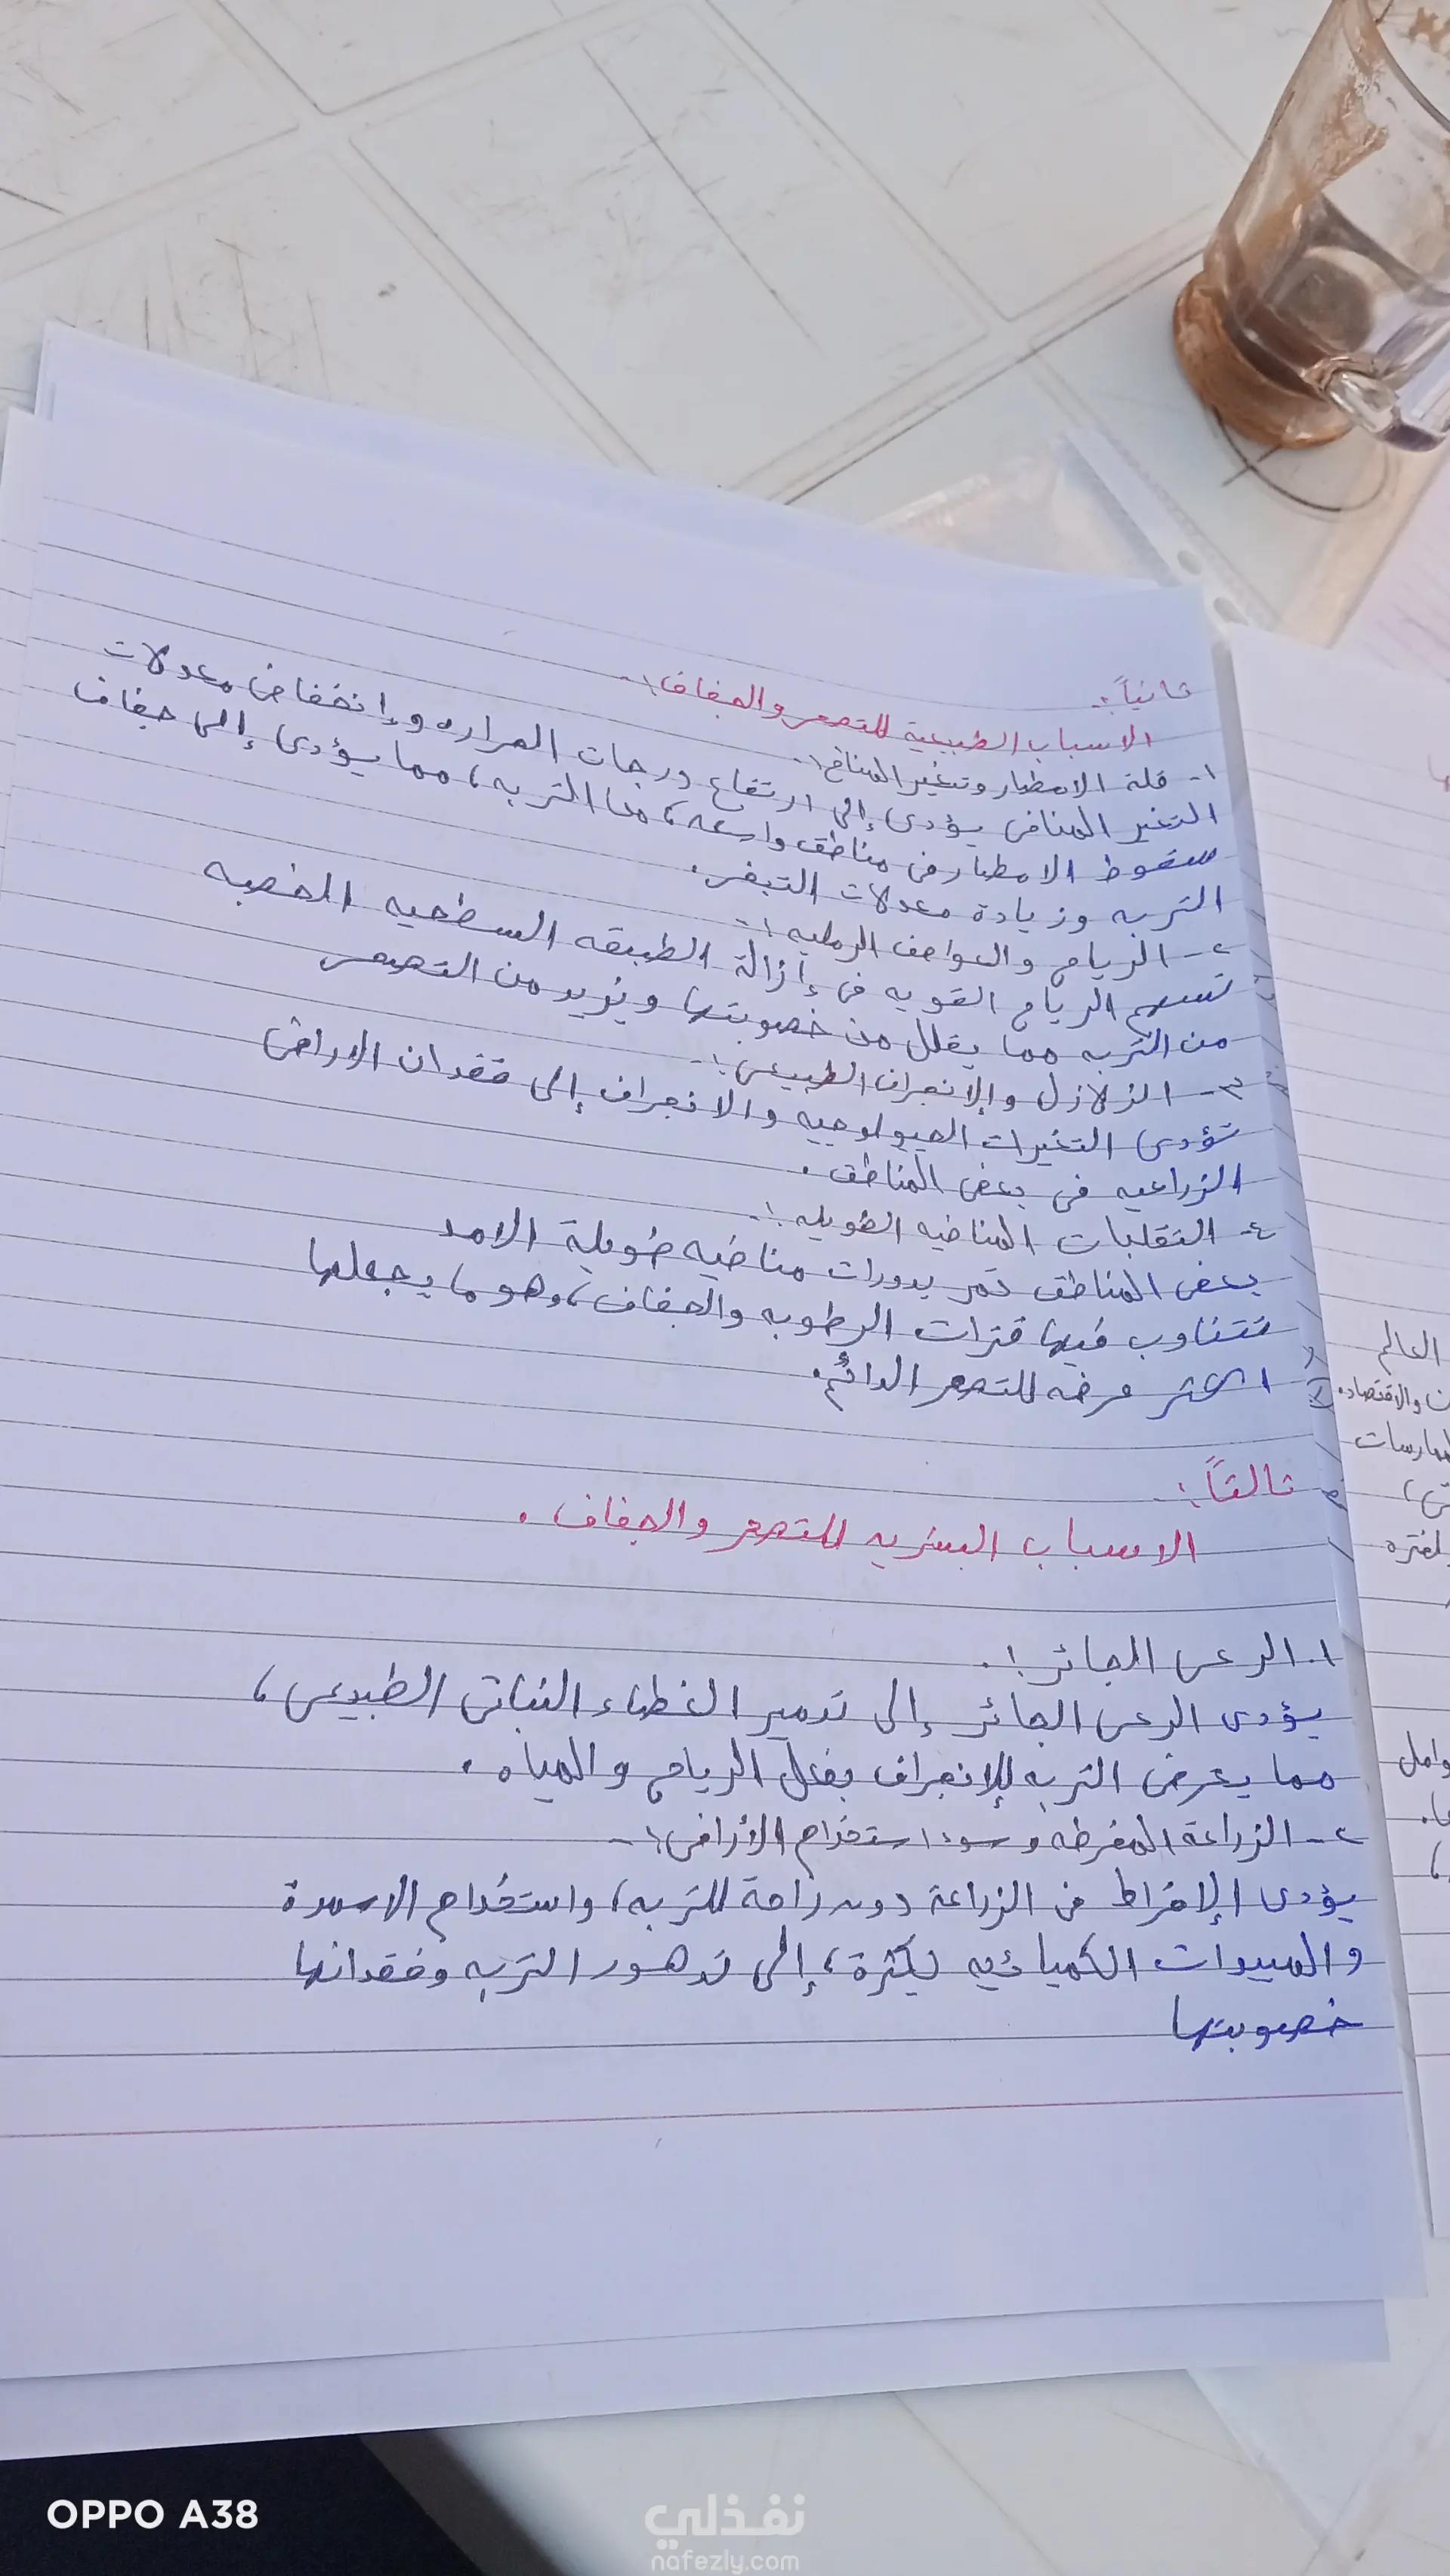 ثانياً:
الاسباب الطبيعية للتصحر والجفاف:-
١- قلة الامطار وتغير المناخ:-
التغير المناخى يؤدى إلى ارتفاع درجات الحراره وإنخفاض معدلات
سقوط الامطار فى مناطق واسعه، من التربه، مما يؤدى إلى جفاف
التربه وزيادة معدلات التبخر.
٢- الرياح والعواصف الرمليه:-
تسهم الرياح القويه فى إزالة الطبقه السطحيه الخصبه
من التربه مما يقلل من خصوبتها ويزيد من التصحر
٣- الزلازل والإنجراف الطبيعى:-
تؤدى التغيرات الجيولوجيه والانجراف إلى فقدان الاراضى
الزراعيه فى بعض المناطق.
٤- التقلبات المناخيه الطويله:-
بعض المناطق تمر بدورات مناخيه طويلة الامد
تتناوب فيها فترات الرطوبه والجفاف، وهو ما يجعلها
اكثر عرضه للتصحر الدائم.
ثالثاً:-
الاسباب البشريه للتصحر والجفاف.
١- الرعى الجائر:-
يؤدى الرعى الجائر إلى تدمير الغطاء النباتى الطبيعى،
مما يعرض التربه للإنجراف بفعل الرياح والمياه.
٢- الزراعة المفرطه وسوء استخدام الأراضى:-
يؤدى الإفراط فى الزراعة دون راحة للتربه، واستخدام الاسمدة
والمبيدات الكميائيه بكثرة، إلى تدهور التربه وفقدانها
خصوبتها
العالم
والاقتصاد.
OPPO A38
نفذلي
nafezly.com